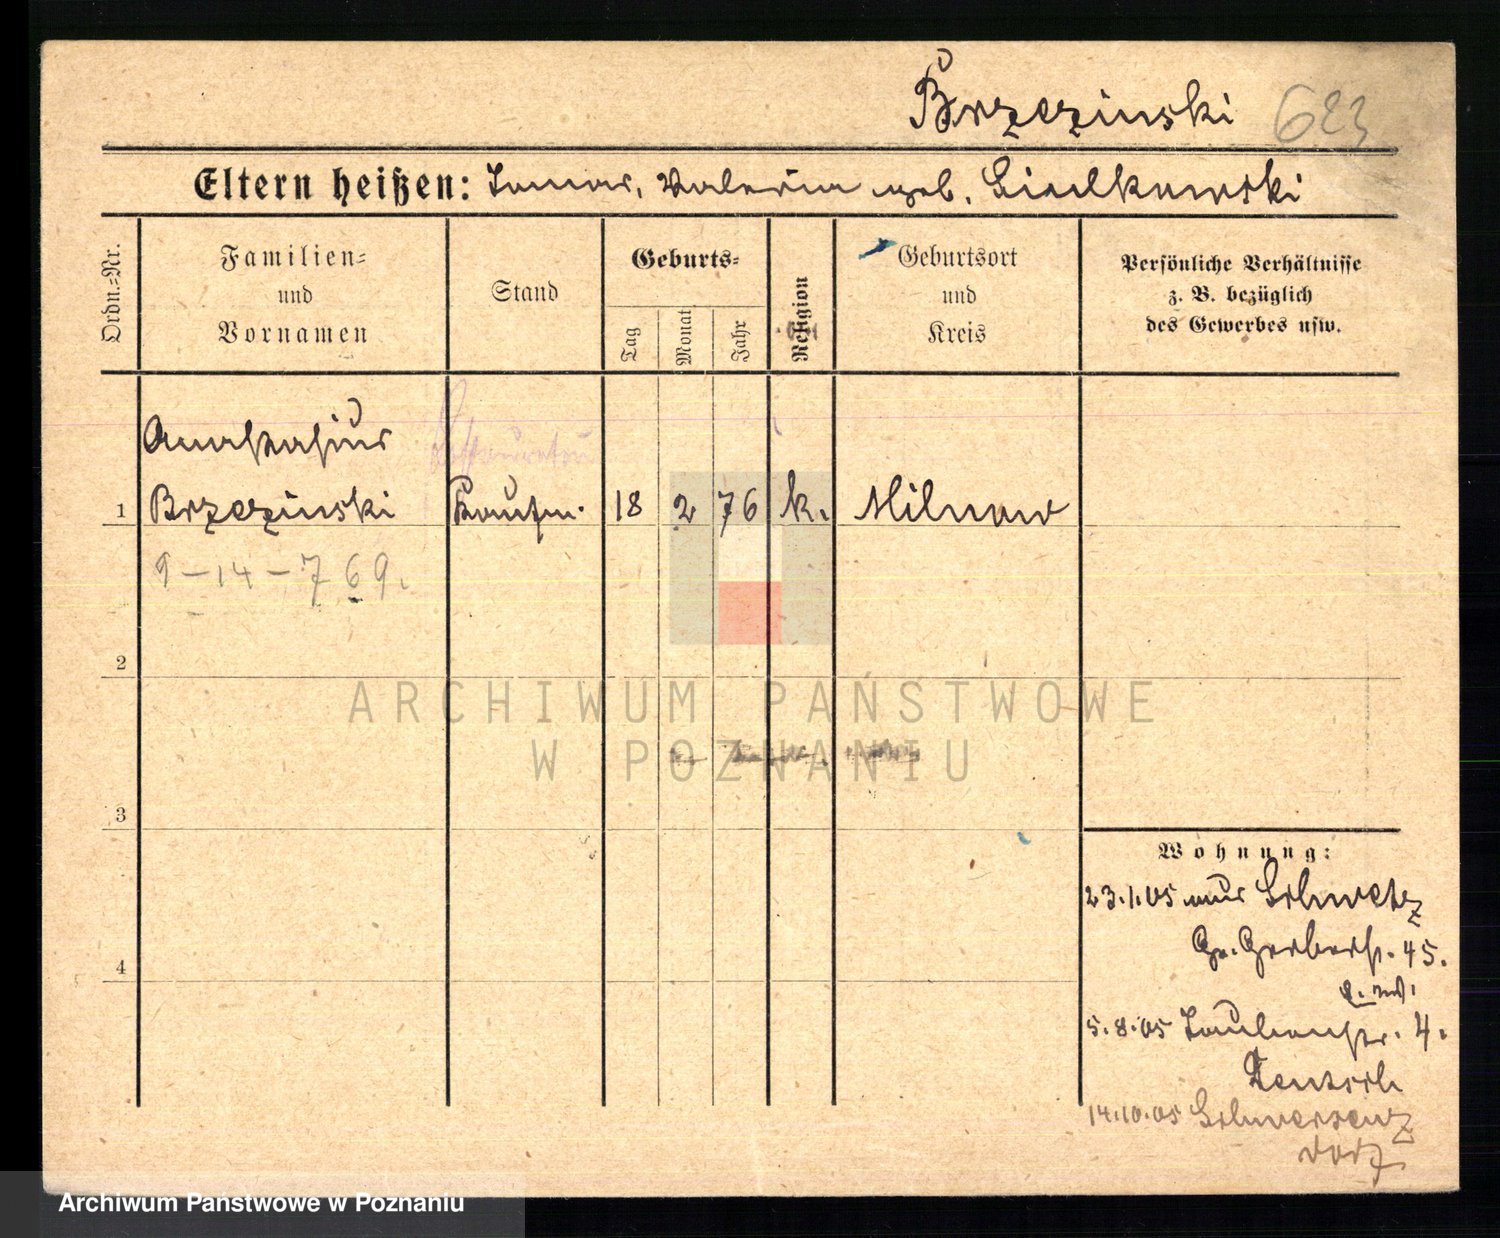 Brzezinski 623
Eltern heißen: Tomas, Valeria geb. Siedlkowski
Ordn.-Nr.
Familien-
und
Vornamen
Stand
Geburts-
Tag
Monat
Jahr
Religion
Geburtsort
und
Kreis
Persönliche Verhältnisse
z. B. bezüglich
des Gewerbes usw.
Anastasius
Restaurateur
1 Brzezinski Kaufm. 18 2 76 k. Milnow
9-14-769.
2
ARCHIWUM PAŃSTWOWE
W POZNANIU
3
Wohnung:
23.1.05 aus Schwetz
Gr. Gerberstr. 45.
4
5.8.05 Taubenstr. 4.
Rentsch
14.10.05 Schwersenz
Dorf
Archiwum Państwowe w Poznaniu